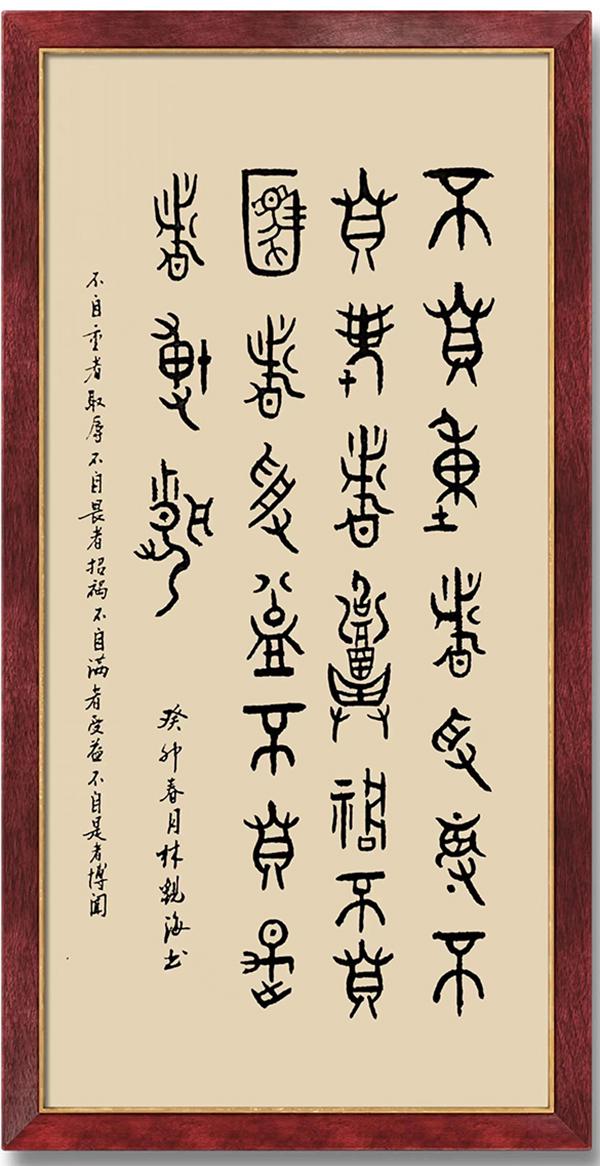 不自重者取辱不
自畏者招禍不自
滿者受益不自是
者博聞
癸卯春月林海书
不自重者取辱不自畏者招祸不自满者受益不自是者博闻